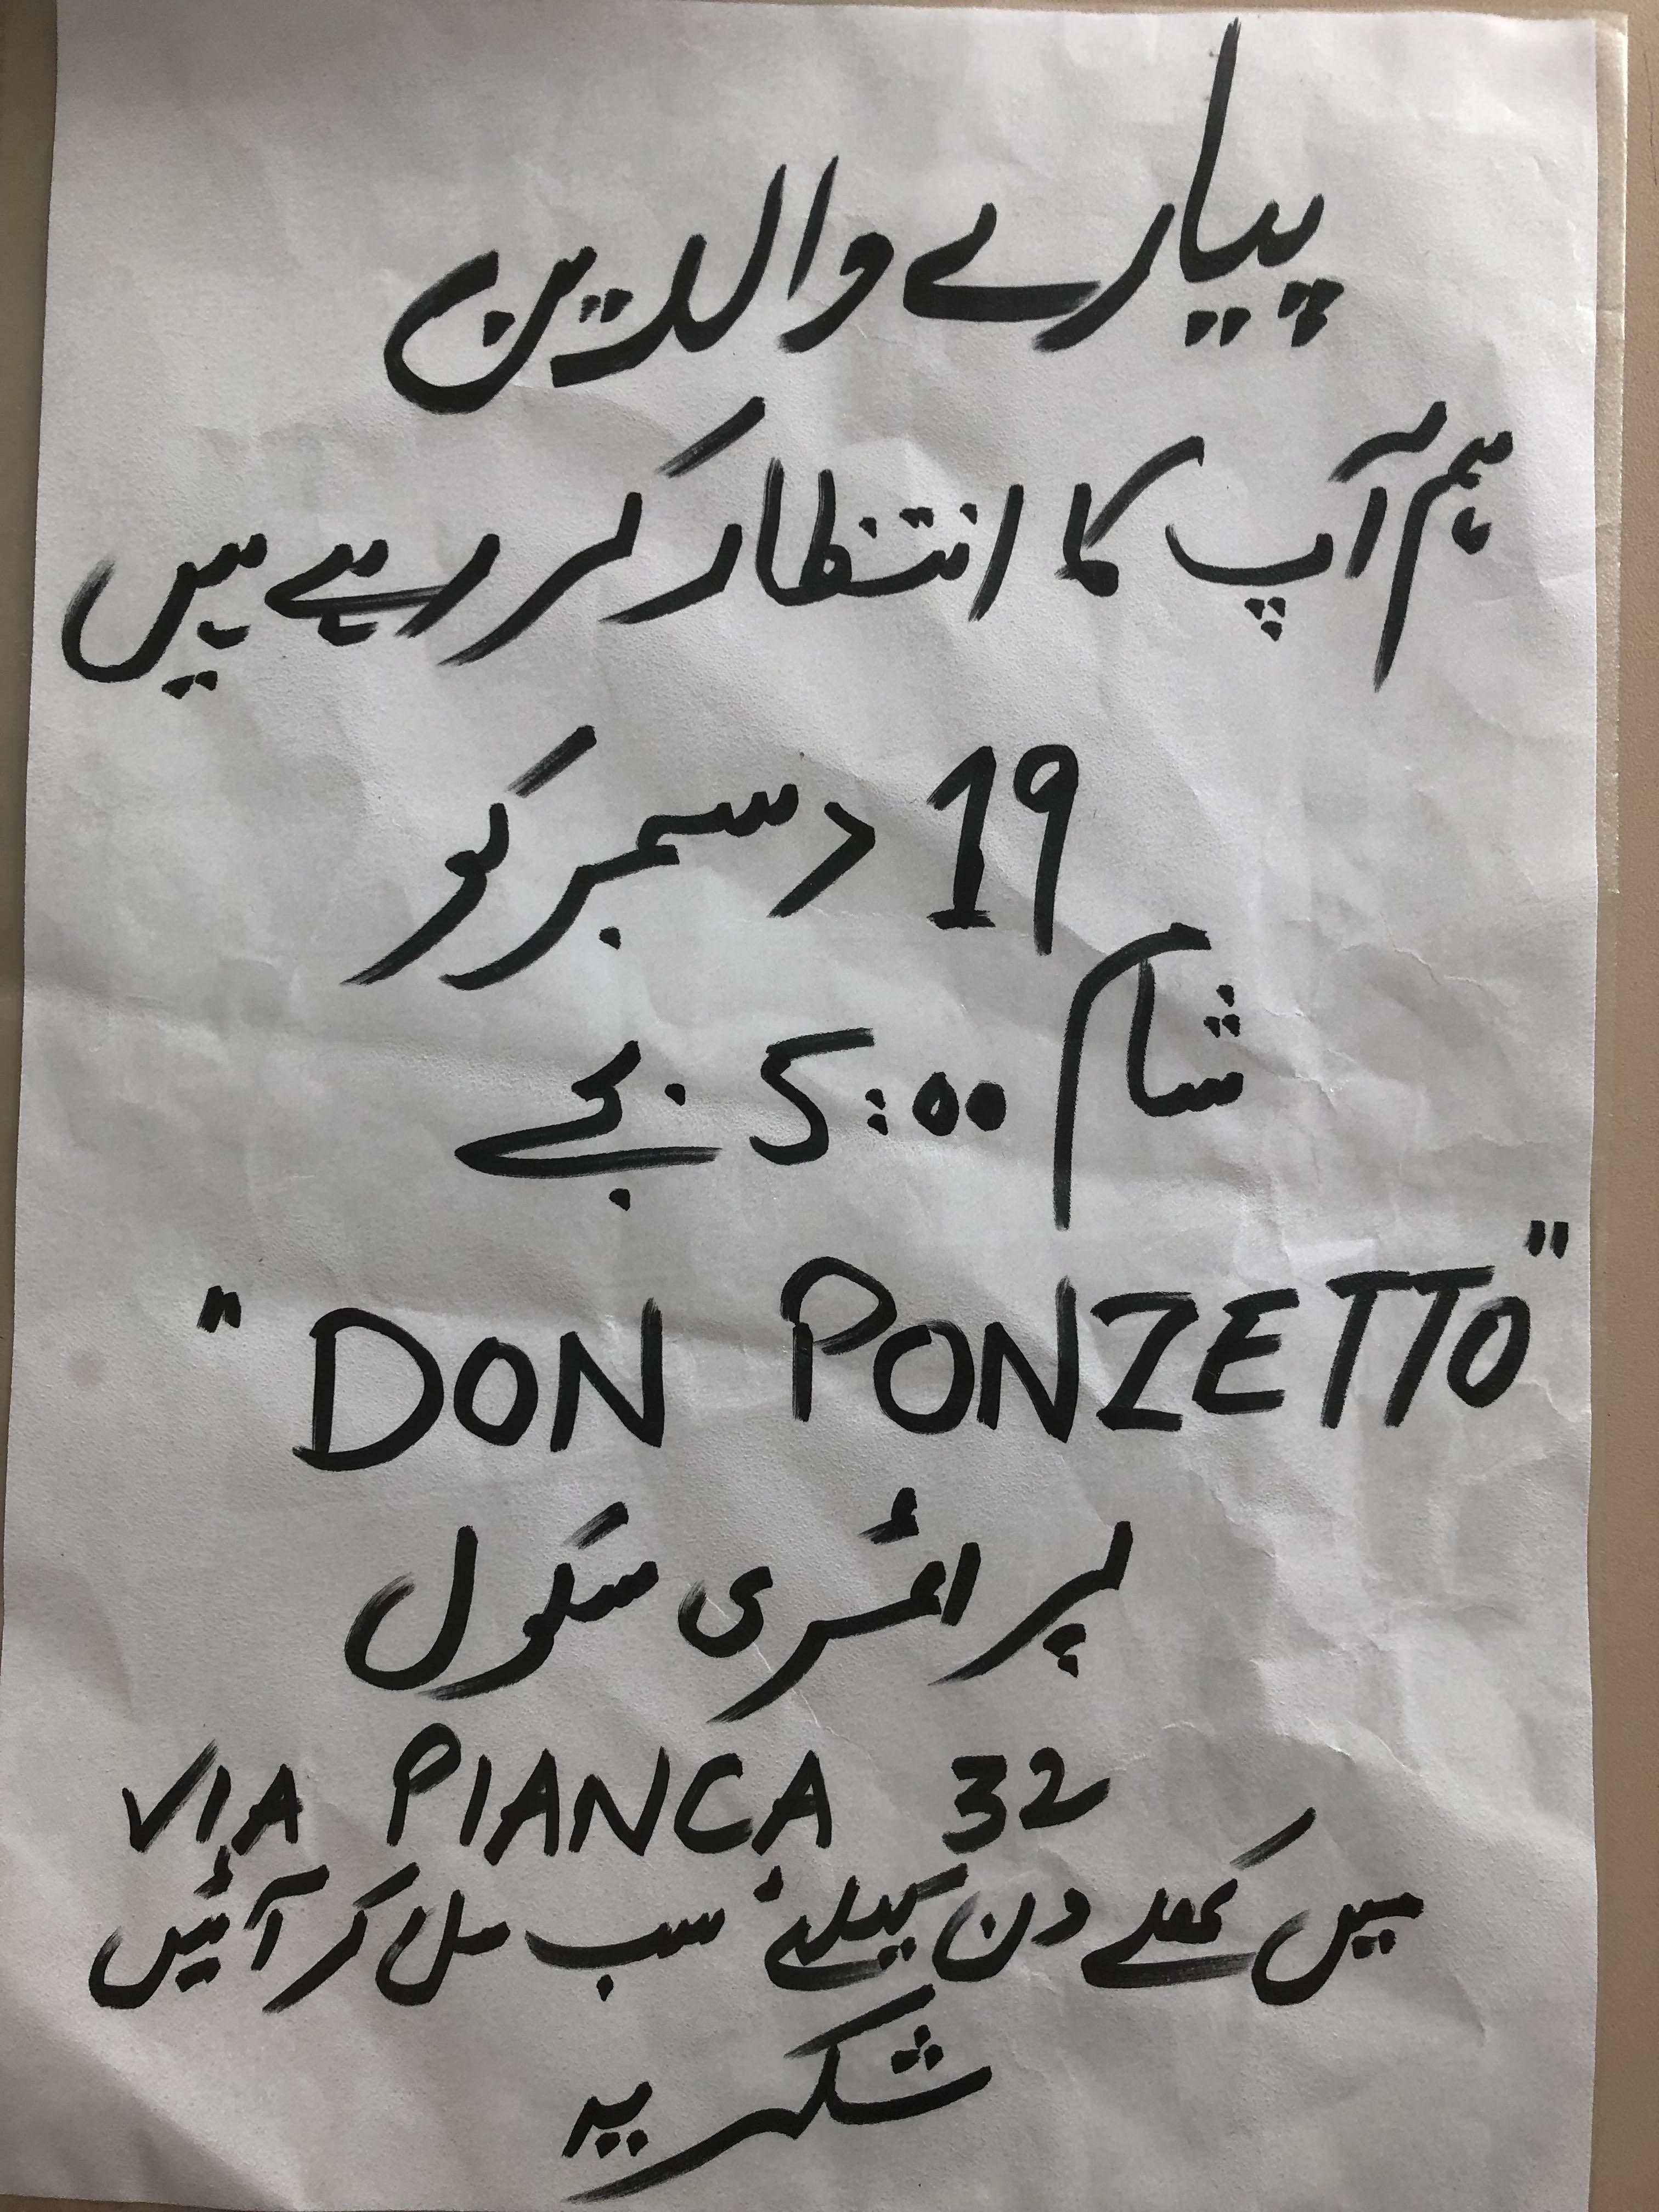 پیارے والدین
ہم آپ کا انتظار کر رہے ہیں
19 دسمبر کو
شام 5:00 بجے
"DON PONZETTO"
پرائمری سکول
VIA PIANCA 32
میں کھلے دن کیلئے سب مل کر آئیں
شکریہ